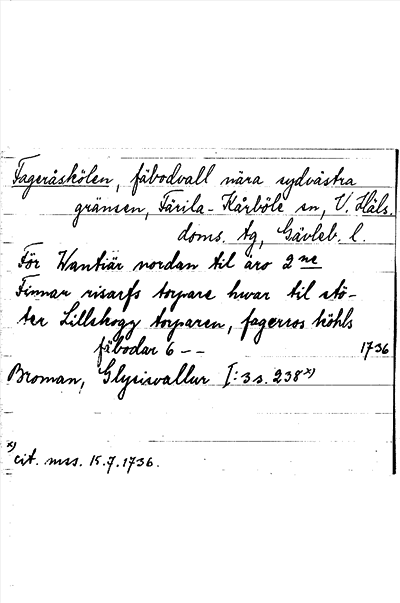 Fageråskölen, fäbodvall nära sydvästra
gränsen, Färila-Kårböle sn, V. Häls.
doms. tg, Gävleb. l.
För Wantiär nordan til äro 2 ne
Finnar risarfs torpare hwar til stö-
ter Lillskogz torparen, fagerros köhls
fäbodar 6 - - 1736
Broman, Glysisvallur I: 3 s. 238 x)
x) cit. mss. 15.7.1736.